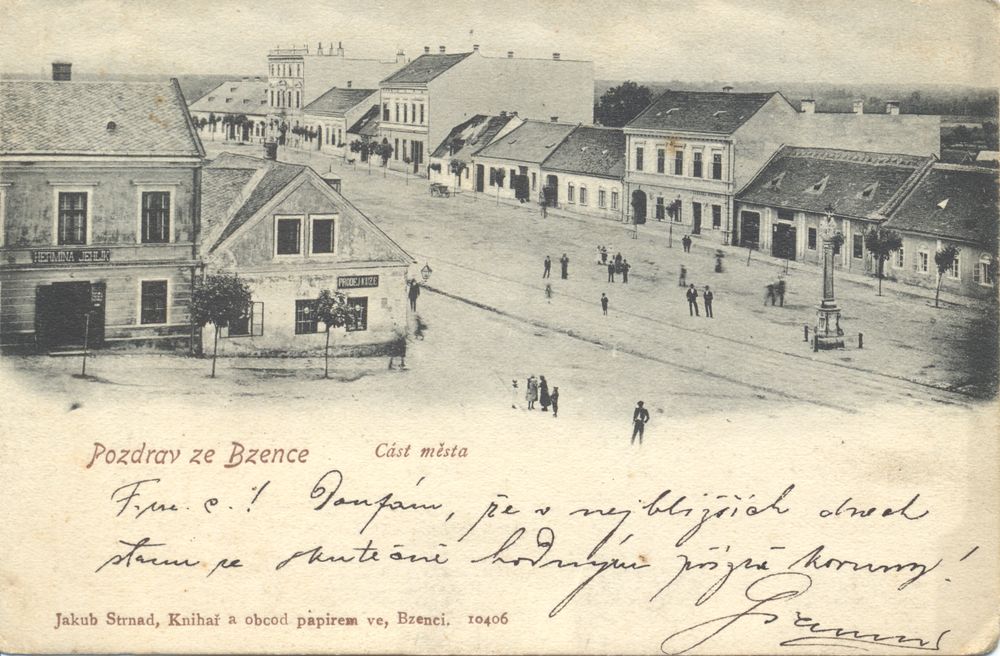 HERMINA JEHLIK
PRODEJ KŮŽE
Pozdrav ze Bzence
Cást města
Doufám, že v nejbližších dnech
stanu se skutečně hodným přízně koruny!
Jakub Strnad, Knihař a obcod papirem ve, Bzenci. 10406